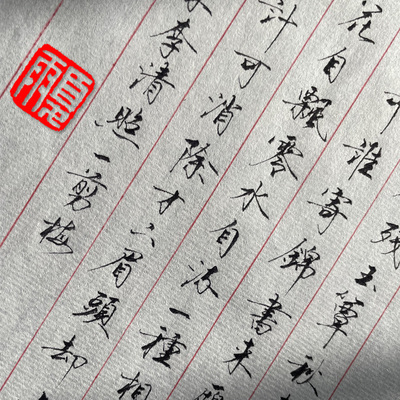 残玉簟秋
中誰寄錦書来雁
花自飄零水自流一種相
計可消除才下眉頭却
李清照一剪梅